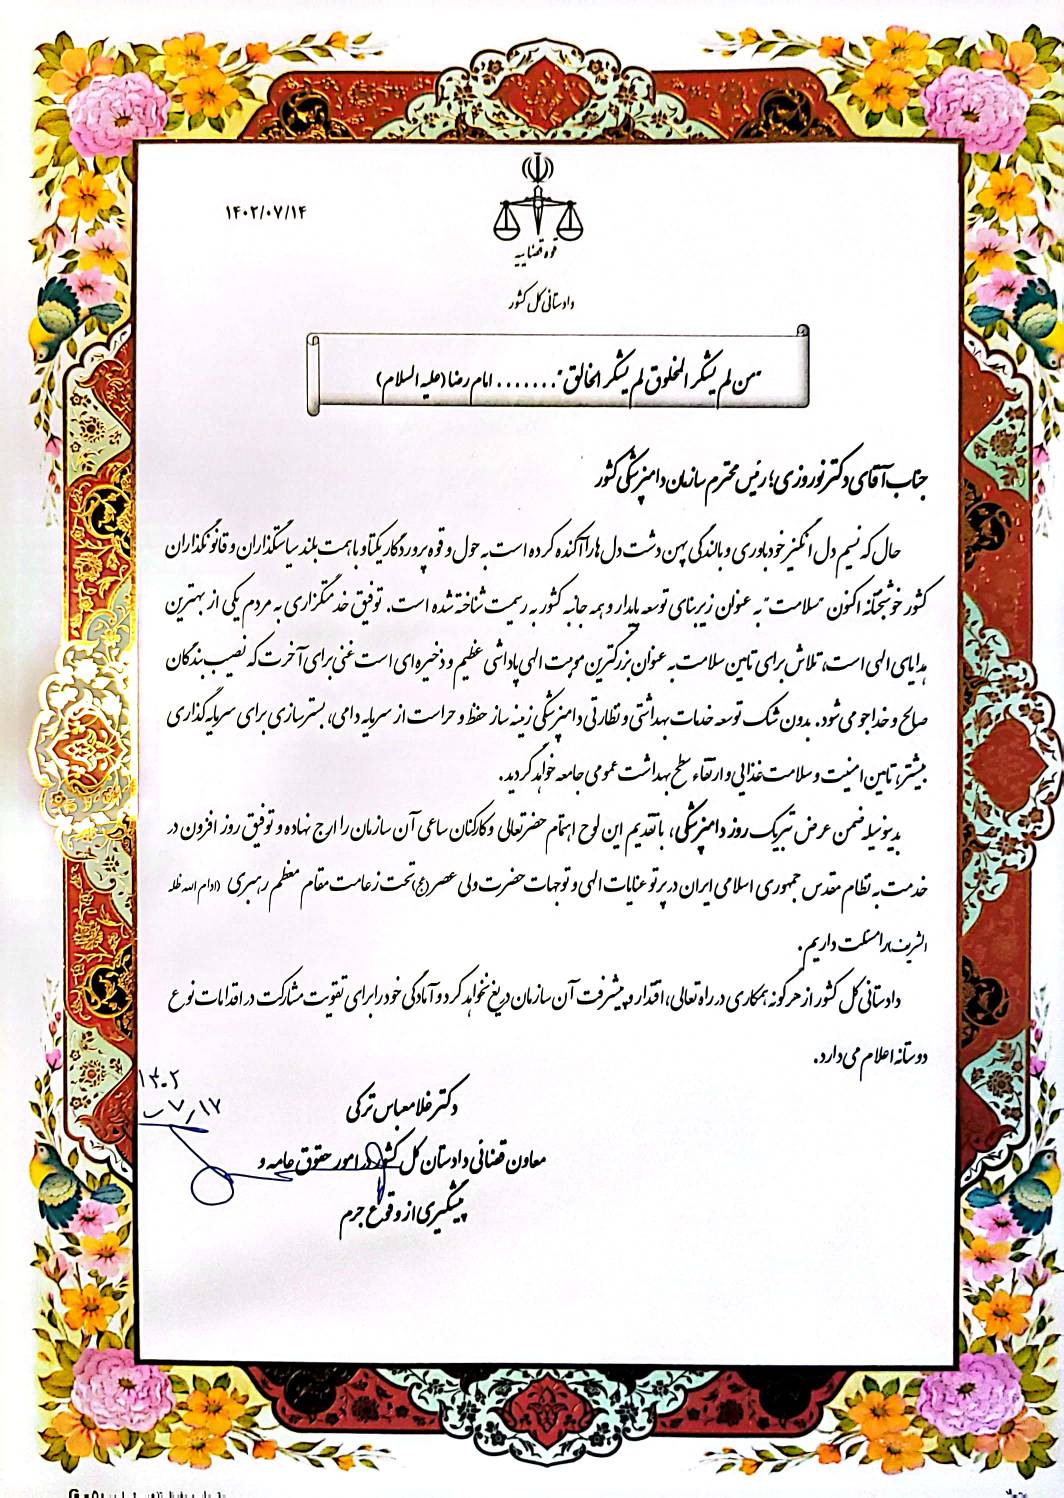 ۱۴۰۲/۰۷/۱۴
قوه قضاییه
دادستانی کل کشور
"من لم یشکر المخلوق لم یشکر الخالق"....... امام رضا (علیه السلام)
جناب آقای دکتر نوروزی؛ رئیس محترم سازمان دامپزشکی کشور
حال که نسیم دل انگیز خودباوری و بالندگی پهن دشت دل ها را آکنده کرده است به حول و قوه پروردگار یکتا و با همت بلند سیاستگذاران و قانونگذاران
کشور خوشبختانه اکنون "سلامت" به عنوان زیربنای توسعه پایدار و همه جانبه کشور به رسمیت شناخته شده است. توفیق خدمتگزاری به مردم یکی از بهترین
هدایای الهی است، تلاش برای تامین سلامت به عنوان بزرگترین موهبت الهی پاداشی عظیم و ذخیره ای است غنی برای آخرت که نصیب بندگان
صالح و خداجو می شود. بدون شک توسعه خدمات بهداشتی و نظارتی دامپزشکی زمینه ساز حفظ و حراست از سرمایه دامی، بسترسازی برای سرمایه گذاری
بیشتر، تامین امنیت و سلامت غذایی و ارتقاء سطح بهداشت عمومی جامعه خواهد گردید.
بدینوسیله ضمن عرض تبریک روز دامپزشکی، با تقدیم این لوح اهتمام حضرتعالی و کارکنان ساعی آن سازمان را ارج نهاده و توفیق روز افزون در
خدمت به نظام مقدس جمهوری اسلامی ایران در پرتو عنایات الهی و توجهات حضرت ولی عصر(عج) تحت زعامت مقام معظم رهبری (ادام الله ظله
الشریف) را مسئلت داریم.
دادستانی کل کشور از هرگونه همکاری در راه تعالی، اقتدار و پیشرفت آن سازمان دریغ نخواهد کرد و آمادگی خود را برای تقویت مشارکت در اقدامات نوع
دوستانه اعلام می دارد.
۱۴۰۲
۷/۱۷
دکتر غلامعباس ترکی
معاون قضائی دادستان کل کشور در امور حقوق عامه و
پیشگیری از وقوع جرم